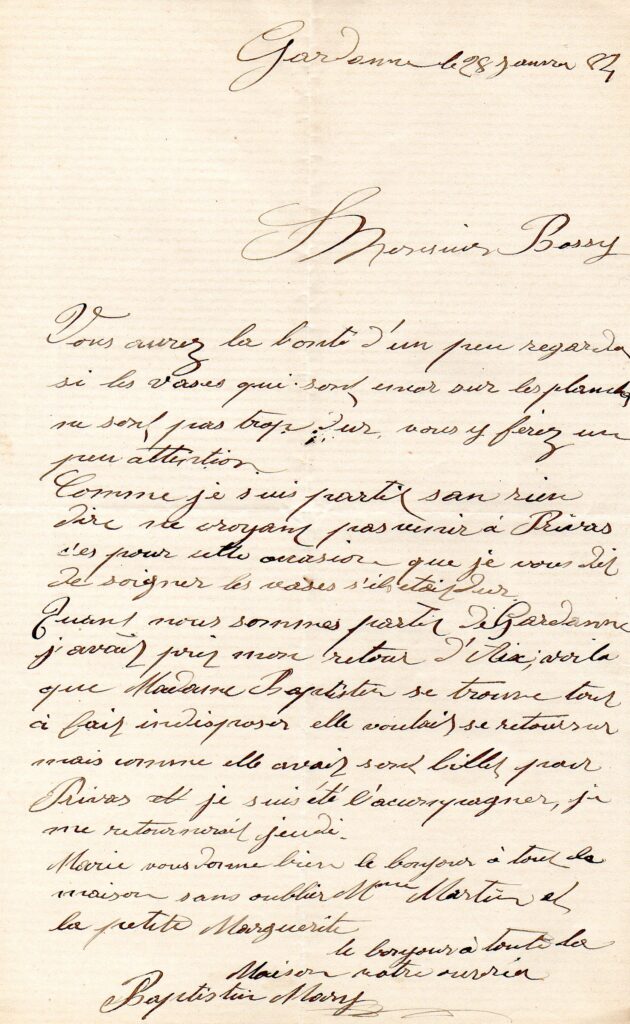 Gardanne le 28 janvier 84
Monsieur Bossy
Vous aurez la bonté d'un peu regarder
si les vases qui sont encor sur les planches
ne sont pas trop dur, vous y ferez un
peu attention.
Comme je suis partit san rien
dire ne croyant pas venir à Privas
c'es pour cette occasion que je vous dit
de soigner les vases s'ils etai dur.
Quant nous sommes partit de Gardanne
j'avait pris mon retour d'Aix, voila
que Madame Baptistin se trouve tout
à fait indisposer elle voulait se retourner
mais comme elle avait sont billet pour
Privas je suis été l'accompagner, je
me retournerait jeudi.
Marie vous donne bien le bonjour à tout la
maison sans oublier Mme Martin et
la petite Marguerite
le bonjour à toute la
Maison votre ouvrier
Baptistin Mary